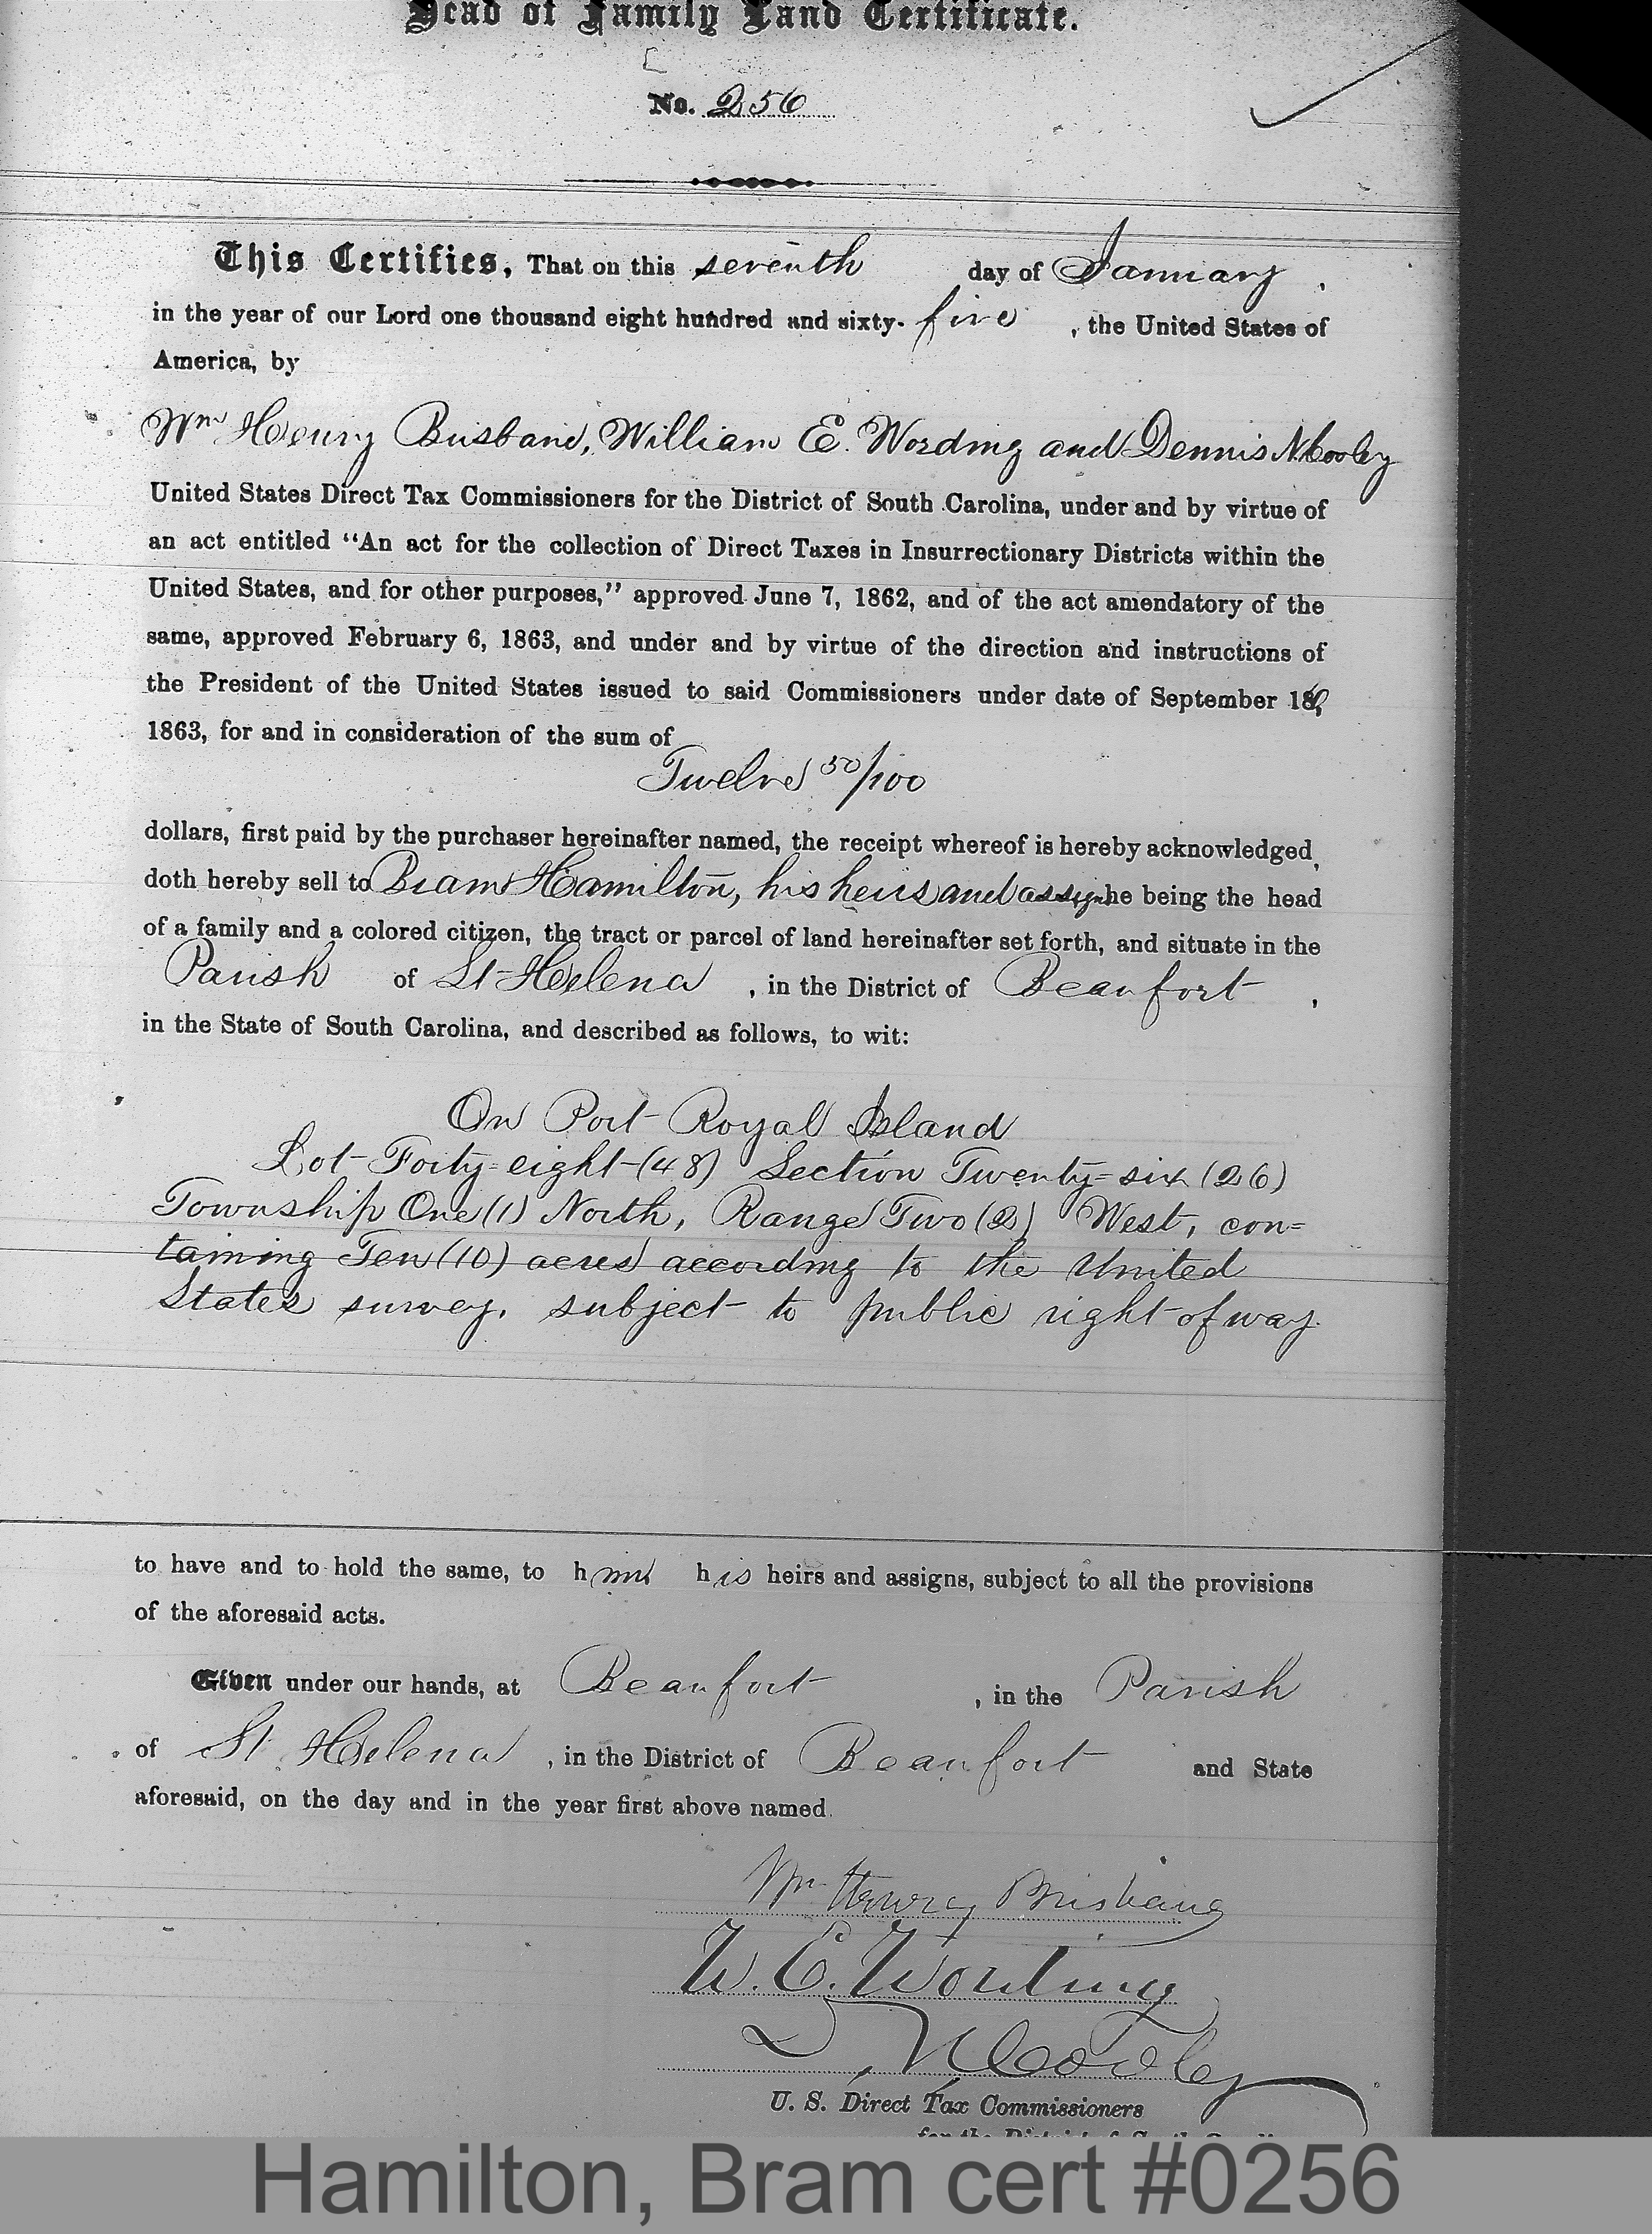 Head of Family Land Certificate.
No. 256
This Certifies, That on this seventh day of January,
in the year of our Lord one thousand eight hundred and sixty-five, the United States of
America, by
Wm Henry Brisbane, William E. Wording and Dennis N Cooley
United States Direct Tax Commissioners for the District of South Carolina, under and by virtue of
an act entitled “An act for the collection of Direct Taxes in Insurrectionary Districts within the
United States, and for other purposes,” approved June 7, 1862, and of the act amendatory of the
same, approved February 6, 1863, and under and by virtue of the direction and instructions of
the President of the United States issued to said Commissioners under date of September
1863, for and in consideration of the sum of
Twelve 50/100
dollars, first paid by the purchaser hereinafter named, the receipt whereof is hereby acknowledged,
doth hereby sell to Bram Hamilton, his heirs and assigns he being the head
of a family and a colored citizen, the tract or parcel of land hereinafter set forth, and situate in the
Parish of St Helena, in the District of Beaufort,
in the State of South Carolina, and described as follows, to wit:
On Port Royal Island
Lot Forty=eight (48) Section Twenty=six (26)
Township One (1) North, Range Two (2) West, con=
taining Ten (10) acres according to the United
States survey, subject to public right of way.
to have and to hold the same, to him his heirs and assigns, subject to all the provisions
of the aforesaid acts.
Given under our hands, at Beaufort, in the Parish
of St Helena, in the District of Beaufort and State
aforesaid, on the day and in the year first above named.
Wm Henry Brisbane
W. E. Wording
D. N. Cooley
U. S. Direct Tax Commissioners
for the District of South Carolina
Hamilton, Bram cert #0256